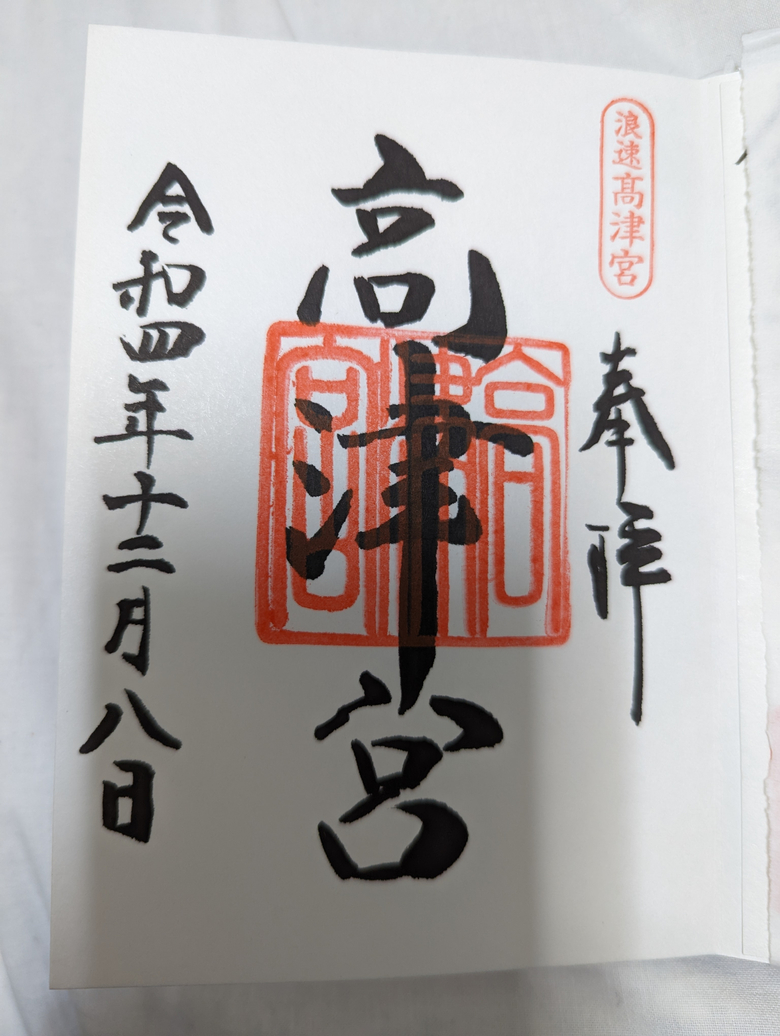 浪速高津宮
奉拝
高津宮
高津宮
令和四年十二月八日